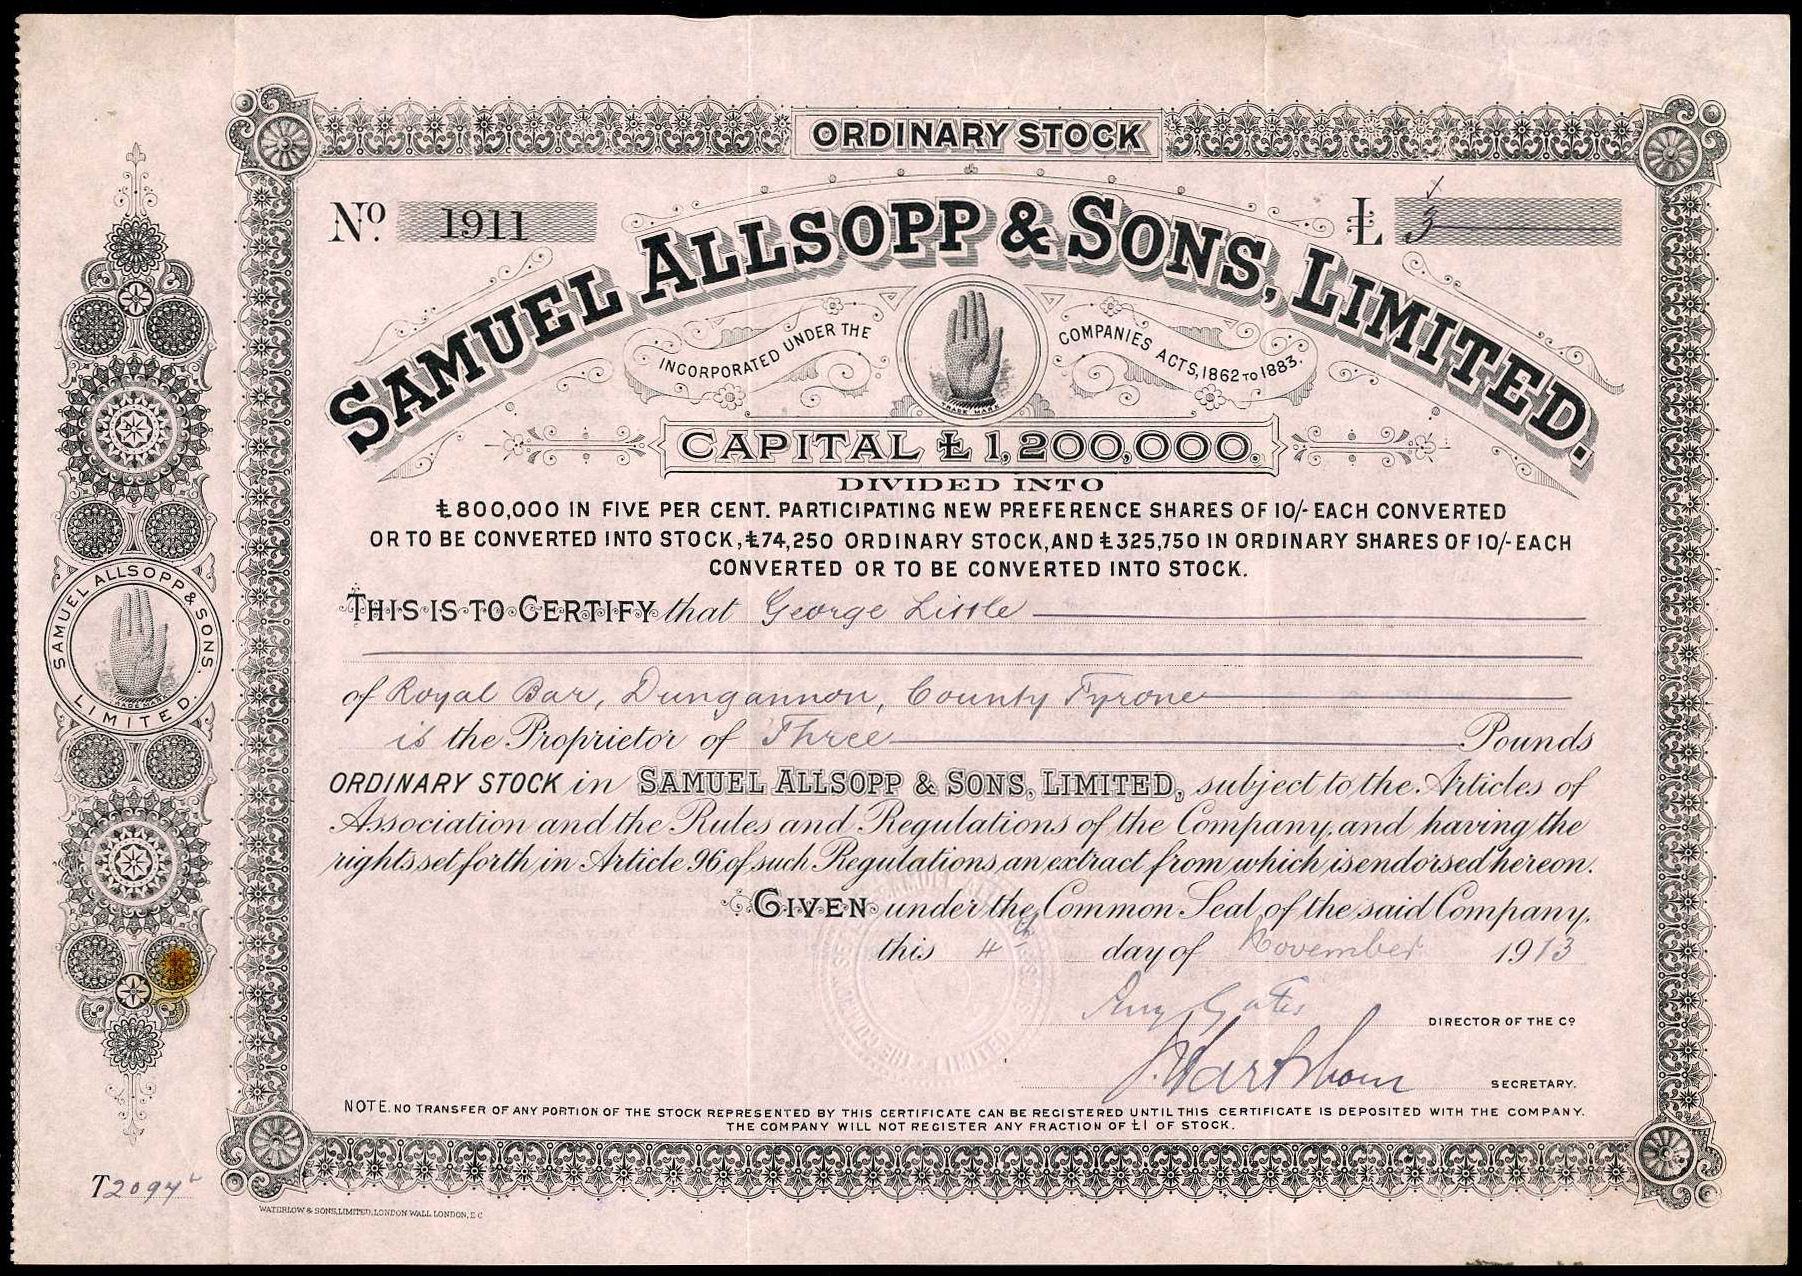 ORDINARY STOCK
No. 1911
£ 3
SAMUEL ALLSOPP & SONS, LIMITED.
INCORPORATED UNDER THE COMPANIES ACTS, 1862 TO 1883.
TRADE MARK
CAPITAL £1,200,000.
DIVIDED INTO
£800,000 IN FIVE PER CENT. PARTICIPATING NEW PREFERENCE SHARES OF 10/- EACH CONVERTED
OR TO BE CONVERTED INTO STOCK, £74,250 ORDINARY STOCK, AND £325,750 IN ORDINARY SHARES OF 10/- EACH
CONVERTED OR TO BE CONVERTED INTO STOCK.
THIS IS TO CERTIFY that George Little
of Royal Bar, Dungannon, County Tyrone
is the Proprietor of Three Pounds
ORDINARY STOCK in SAMUEL ALLSOPP & SONS, LIMITED, subject to the Articles of
Association and the Rules and Regulations of the Company, and having the
rights set forth in Article 96 of such Regulations, an extract from which is endorsed hereon.
GIVEN under the Common Seal of the said Company,
this 4th day of November 1913
DIRECTOR OF THE Co
SECRETARY.
NOTE. NO TRANSFER OF ANY PORTION OF THE STOCK REPRESENTED BY THIS CERTIFICATE CAN BE REGISTERED UNTIL THIS CERTIFICATE IS DEPOSITED WITH THE COMPANY.
THE COMPANY WILL NOT REGISTER ANY FRACTION OF £1 OF STOCK.
SAMUEL ALLSOPP & SONS. LIMITED.
TRADE MARK
T2094
WATERLOW & SONS, LIMITED, LONDON WALL LONDON, E C